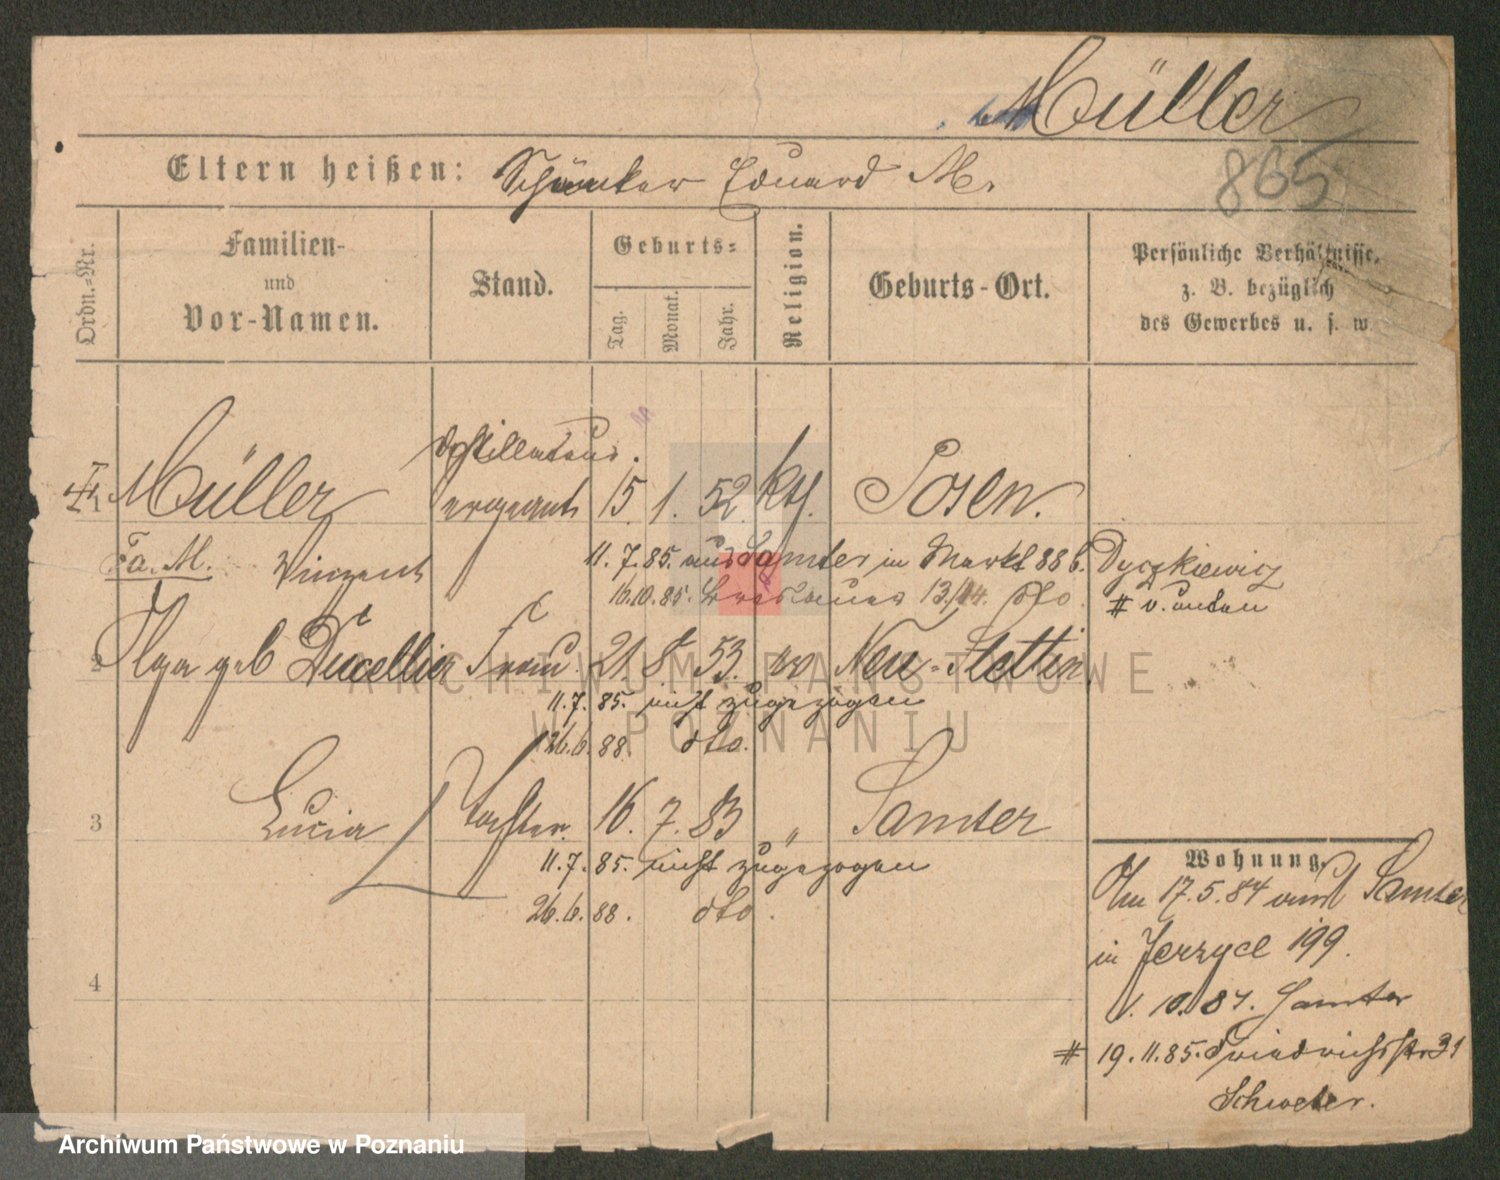 Müller
865
Eltern heißen: Schänker Eduard M.
Ordn.-Nr.
Familien-
und
Vor-Namen.
Stand.
Geburts=
Tag.
Monat.
Jahr.
Religion.
Geburts-Ort.
Persönliche Verhältnisse,
z. B. bezüglich
des Gewerbes u. s. w.
Destillateur.
1 Müller Sergeant 15. 1. 52. kth. Posen.
Fa. M. Vincent 11. 7. 85. aus Samter in Markt 88 b. Dyczkiewicz
16.10.85. Breslauer 13/14. dto. # v. unten
2 Olga geb Ducellier Frau 21. 8. 53. ev Neu-Stettin
11.7.85. nicht zugezogen
26.6.88. dto.
3 Lucia Tochter. 16. 7. 83 " Samter
11.7.85. nicht zugezogen
26.6.88. dto.
4
Wohnung.
Am 17.5.84 aus Samter
in Jerzyce 199.
1.10.84. Samter
# 19.11.85. Friedrichstr 31
Schweter.
ARCHIWUM PAŃSTWOWE
W POZNANIU
Archiwum Państwowe w Poznaniu